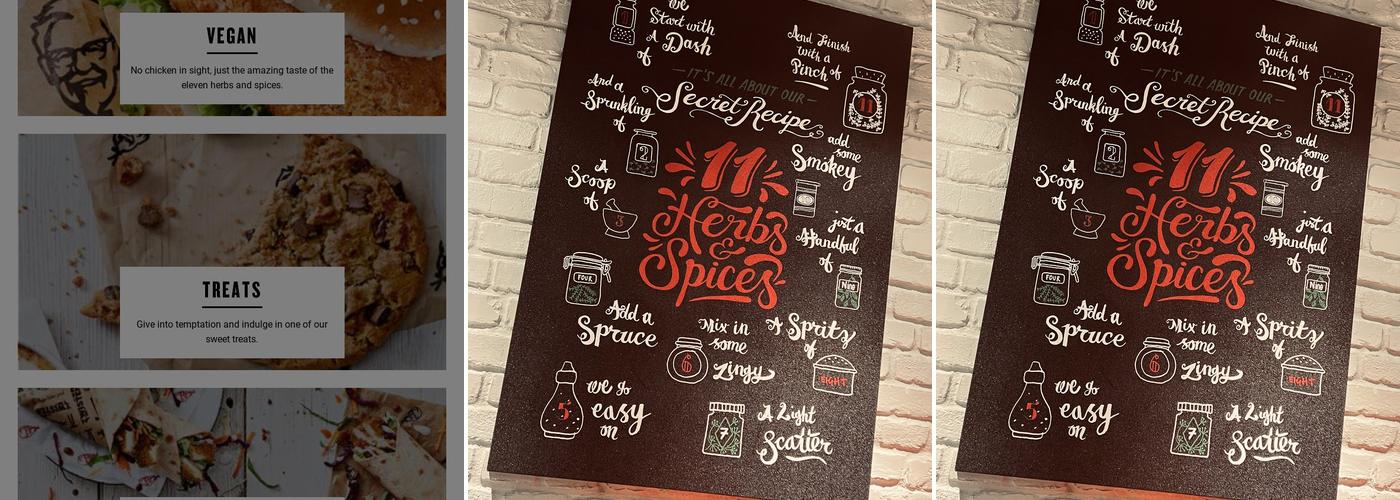 VEGAN
No chicken in sight, just the amazing taste of the
eleven herbs and spices.
TREATS
Give into temptation and indulge in one of our
sweet treats.
we
Start with
A Dash
of
1
And a
Sprinkling
of
2
A
Scoop
of
3
FOUR
Add a
Spruce
5
we go
easy
on
Mix in
some
Zingy
6
A Light
Scatter
7
A Spritz
of
EIGHT
just a
Handful
of
Nine
add
some
Smokey
10
And Finish
with a
Pinch of
11
IT'S ALL ABOUT OUR
Secret Recipe
11
Herbs
&
Spices
we
Start with
A Dash
of
1
And a
Sprinkling
of
2
A
Scoop
of
3
FOUR
Add a
Spruce
5
we go
easy
on
Mix in
some
Zingy
6
A Light
Scatter
7
A Spritz
of
EIGHT
just a
Handful
of
Nine
add
some
Smokey
10
And Finish
with a
Pinch of
11
IT'S ALL ABOUT OUR
Secret Recipe
11
Herbs
&
Spices